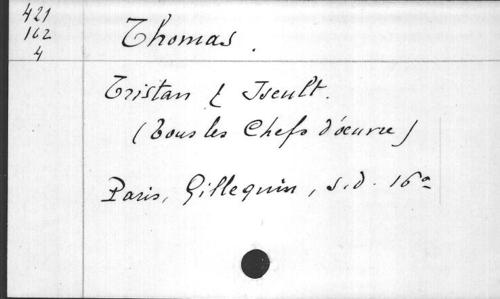 421
162
4
Thomas.
Tristan & Iseult.
(Tous les Chefs d'oeuvre)
Paris, Gillequin, s.d. 16°